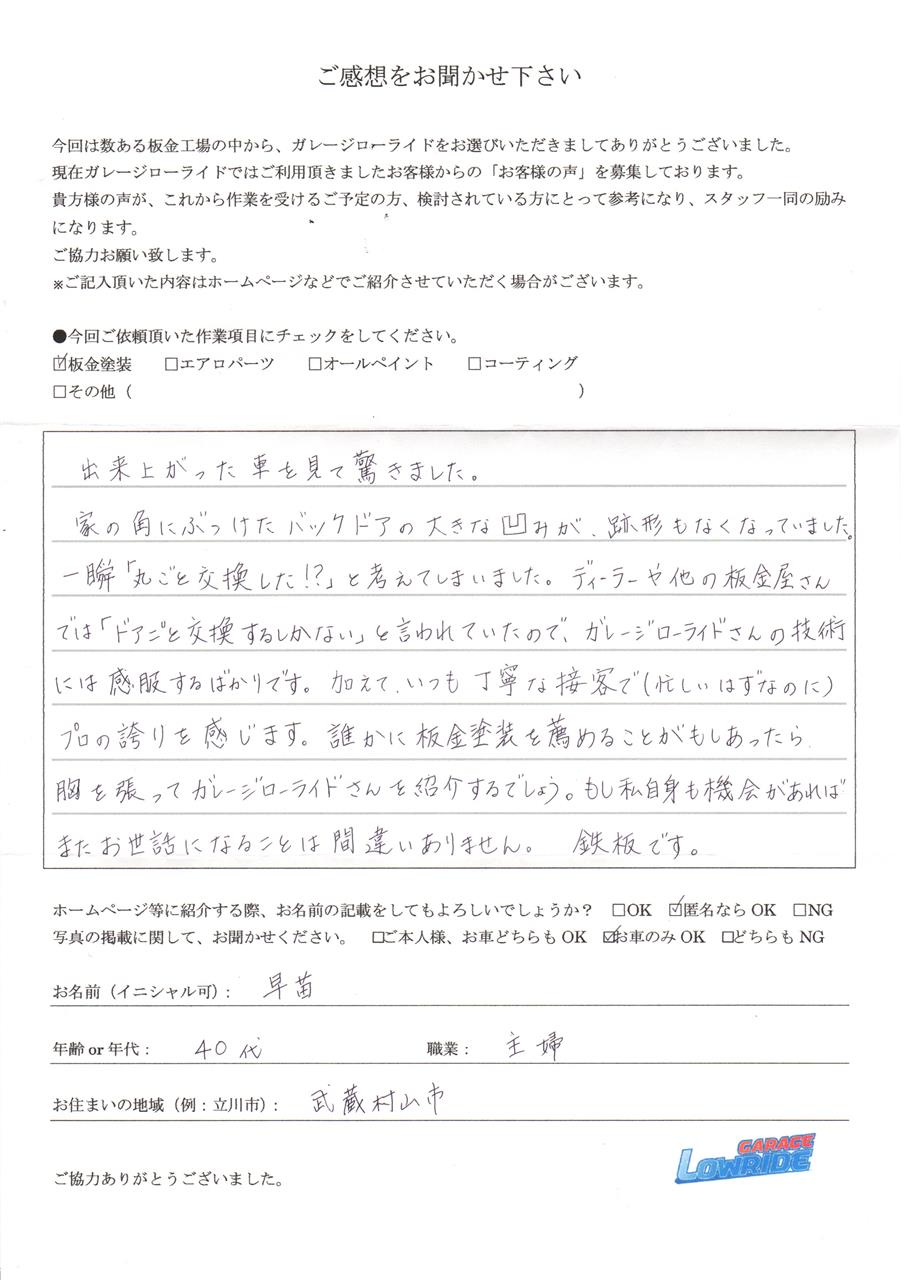 ご感想をお聞かせ下さい
今回は数ある板金工場の中から、ガレージローライドをお選びいただきましてありがとうございました。
現在ガレージローライドではご利用頂きましたお客様からの「お客様の声」を募集しております。
貴方様の声が、これから作業を受けるご予定の方、検討されている方にとって参考になり、スタッフ一同の励み
になります。
ご協力お願い致します。
※ご記入頂いた内容はホームページなどでご紹介させていただく場合がございます。
●今回ご依頼頂いた作業項目にチェックをしてください。
☑板金塗装 □エアロパーツ □オールペイント □コーティング
□その他（ ）
出来上がった車を見て驚きました。
家の角にぶつけたバックドアの大きな凹みが、跡形もなくなっていました。
一瞬「丸ごと交換した!?」と考えてしまいました。ディーラーや他の板金屋さん
では「ドアごと交換するしかない」と言われていたので、ガレージローライドさんの技術
には感服するばかりです。加えて、いつも丁寧な接客で(忙しいはずなのに)
プロの誇りを感じます。誰かに板金塗装を薦めることがもしあったら、
胸を張ってガレージローライドさんを紹介するでしょう。もし私自身も機会があれば
またお世話になることは間違いありません。 鉄板です。
ホームページ等に紹介する際、お名前の記載をしてもよろしいでしょうか？ □OK ☑匿名なら OK □NG
写真の掲載に関して、お聞かせください。 □ご本人様、お車どちらも OK ☑お車のみ OK □どちらも NG
お名前（イニシャル可）： 早苗
年齢 or 年代： 40代 職業： 主婦
お住まいの地域（例：立川市）： 武蔵村山市
GARAGE
LOWRIDE
ご協力ありがとうございました。